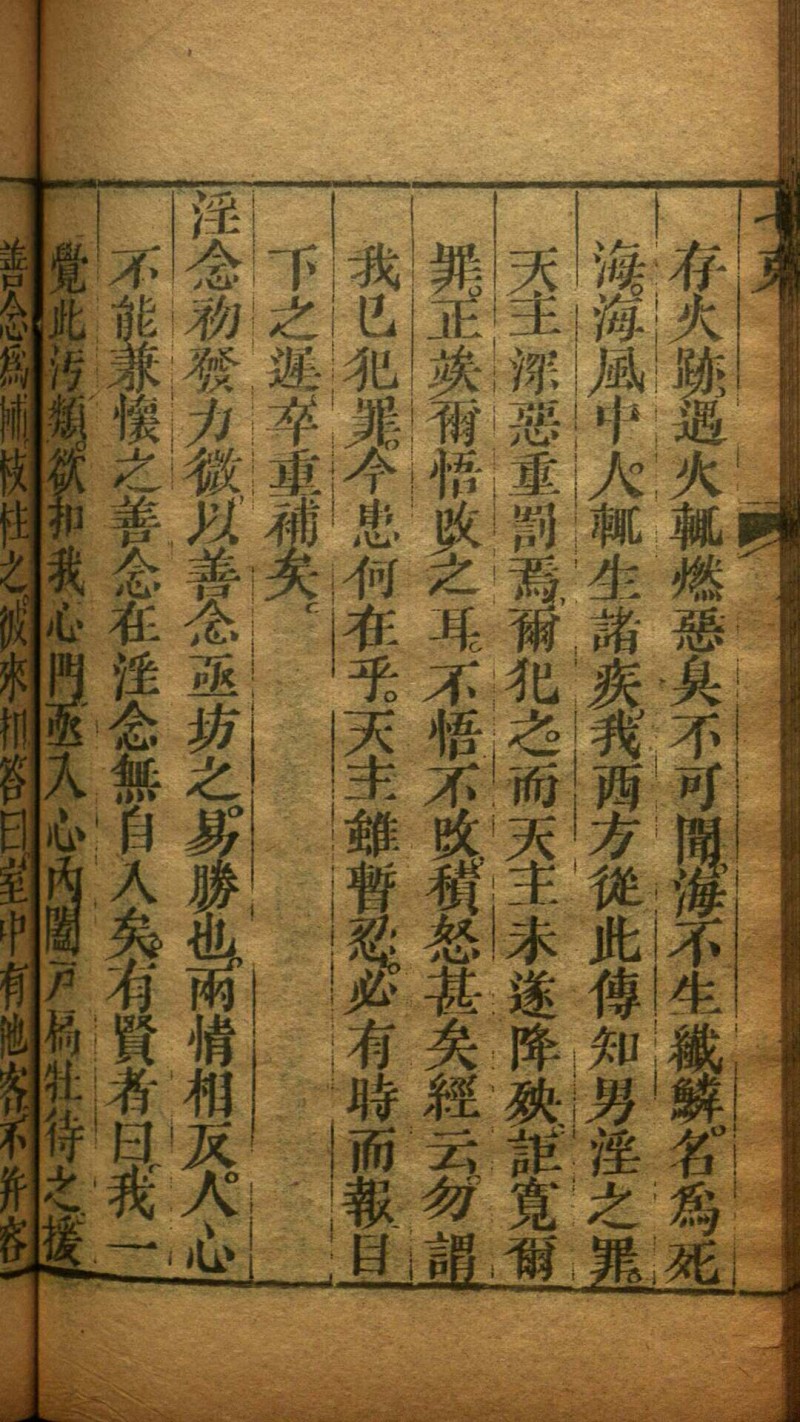 七克
存火跡。遇火輒燃。惡臭不可聞。海不生纖鱗。名為死
海。海風中人。輒生諸疾。我西方從此傳知男淫之罪。
天主深惡重罰焉。爾犯之。而天主未遂降殃。詎寬爾
罪。正竢爾悟改之耳。不悟不改。積怒甚矣。經云。勿謂
我已犯罪。今患何在乎。天主雖暫忍。必有時而報。目
下之遲。卒重補矣。
淫念初發力微。以善念亟坊之。易勝也。兩情相反。人心
不能兼懷之。善念在。淫念無自入矣。有賢者曰。我一
覺此污類。欲扣我心門。亟入心內。闔戶扃牡待之。援
善念為輔。枝柱之。彼來扣。答曰。室中有他客。不并容